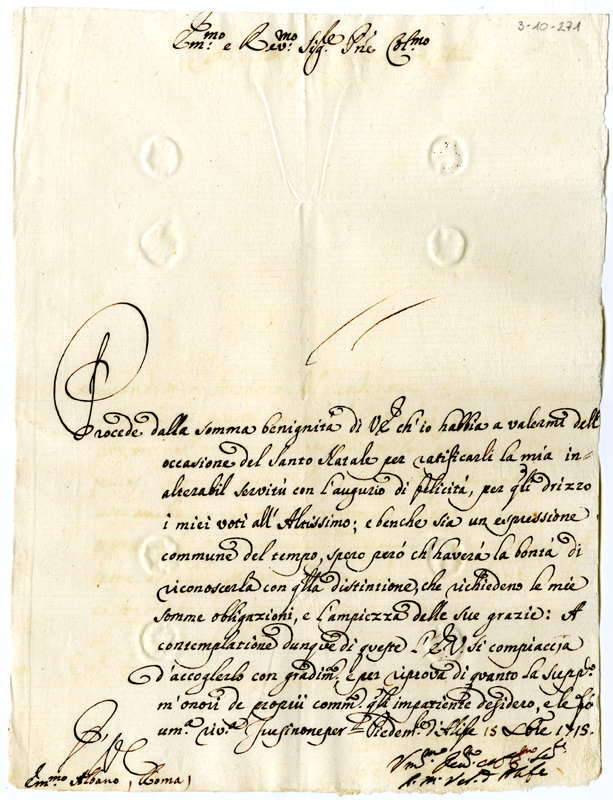 3-10-271
Em.mo e Rev.mo Sig.re Pne Col.mo
Procede dalla somma benignità di V.E. ch'io habbia a valermi dell'
occasione del Santo Natale per ratificarli la mia in=
alterabil servitù con l'augurio di felicità, per q̃li drizzo
i miei voti all'Altissimo; e benche sia un espressione
commune del tempo, spero però ch'haverà la bontà di
riconoscerla con q̃lla distintione, che richiedono le mie
somme obligazioni, e l'ampiezza delle sue grazie: A
contemplatione dunque di queste l'E.V. si compiaccia
d'accoglerlo con gradim.to, e per riprova di quanto la supp.co
m'onori de proprii comm.di q̃li impatiente desidero, e le fò
um.a riv.a Piedem.te d'Alife 15 Xbre 1715.
Em.mo Albano, (Roma)